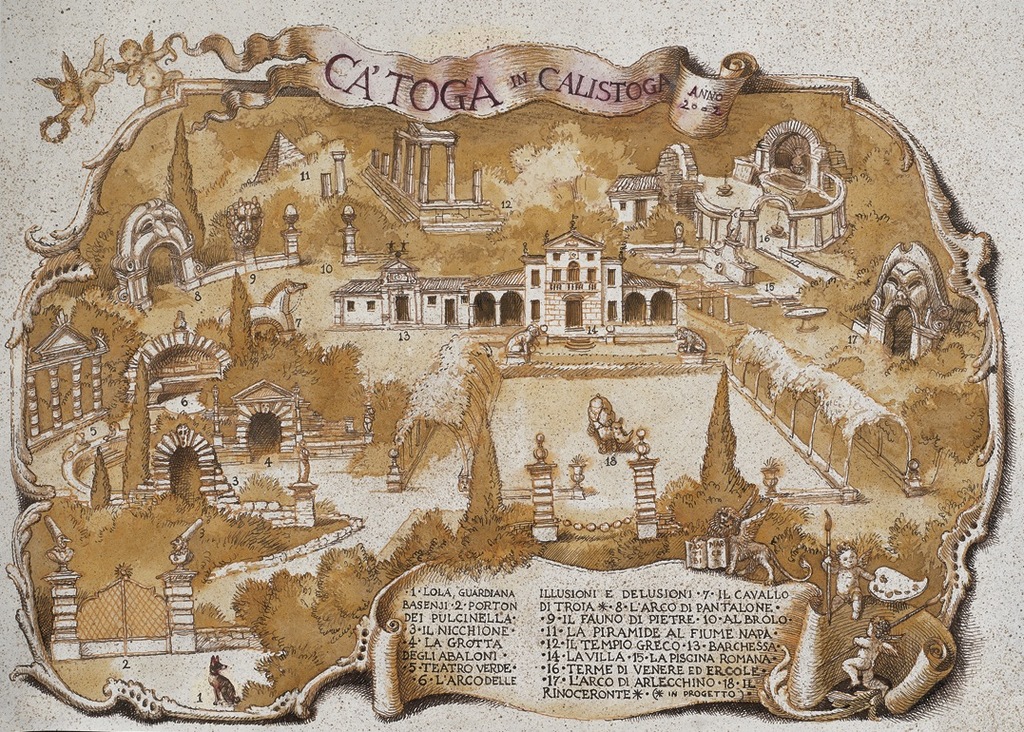 CA'TOGA IN CALISTOGA
ANNO
2002
11
12
8
9
10
7
16
15
13
14
17
6
5
4
3
18
2
1
·1·LOLA, GUARDIANA
BASENJI·2·PORTON
DEI PULCINELLA·
·3·IL NICCHIONE·
·4·LA GROTTA
DEGLI ABALONI·
·5·TEATRO VERDE·
·6·L'ARCO DELLE
ILLUSIONI E DELUSIONI·7·IL CAVALLO
DI TROIA*·8·L'ARCO DI PANTALONE·
·9·IL FAUNO DI PIETRE·10·AL BROLO·
·11·LA PIRAMIDE AL FIUME NAPA·
·12·IL TEMPIO GRECO·13·BARCHESSA·
·14·LA VILLA·15·LA PISCINA ROMANA·
·16·TERME DI VENERE ED ERCOLE·
·17·L'ARCO DI ARLECCHINO·18·IL
RINOCERONTE*·(* IN PROGETTO)·